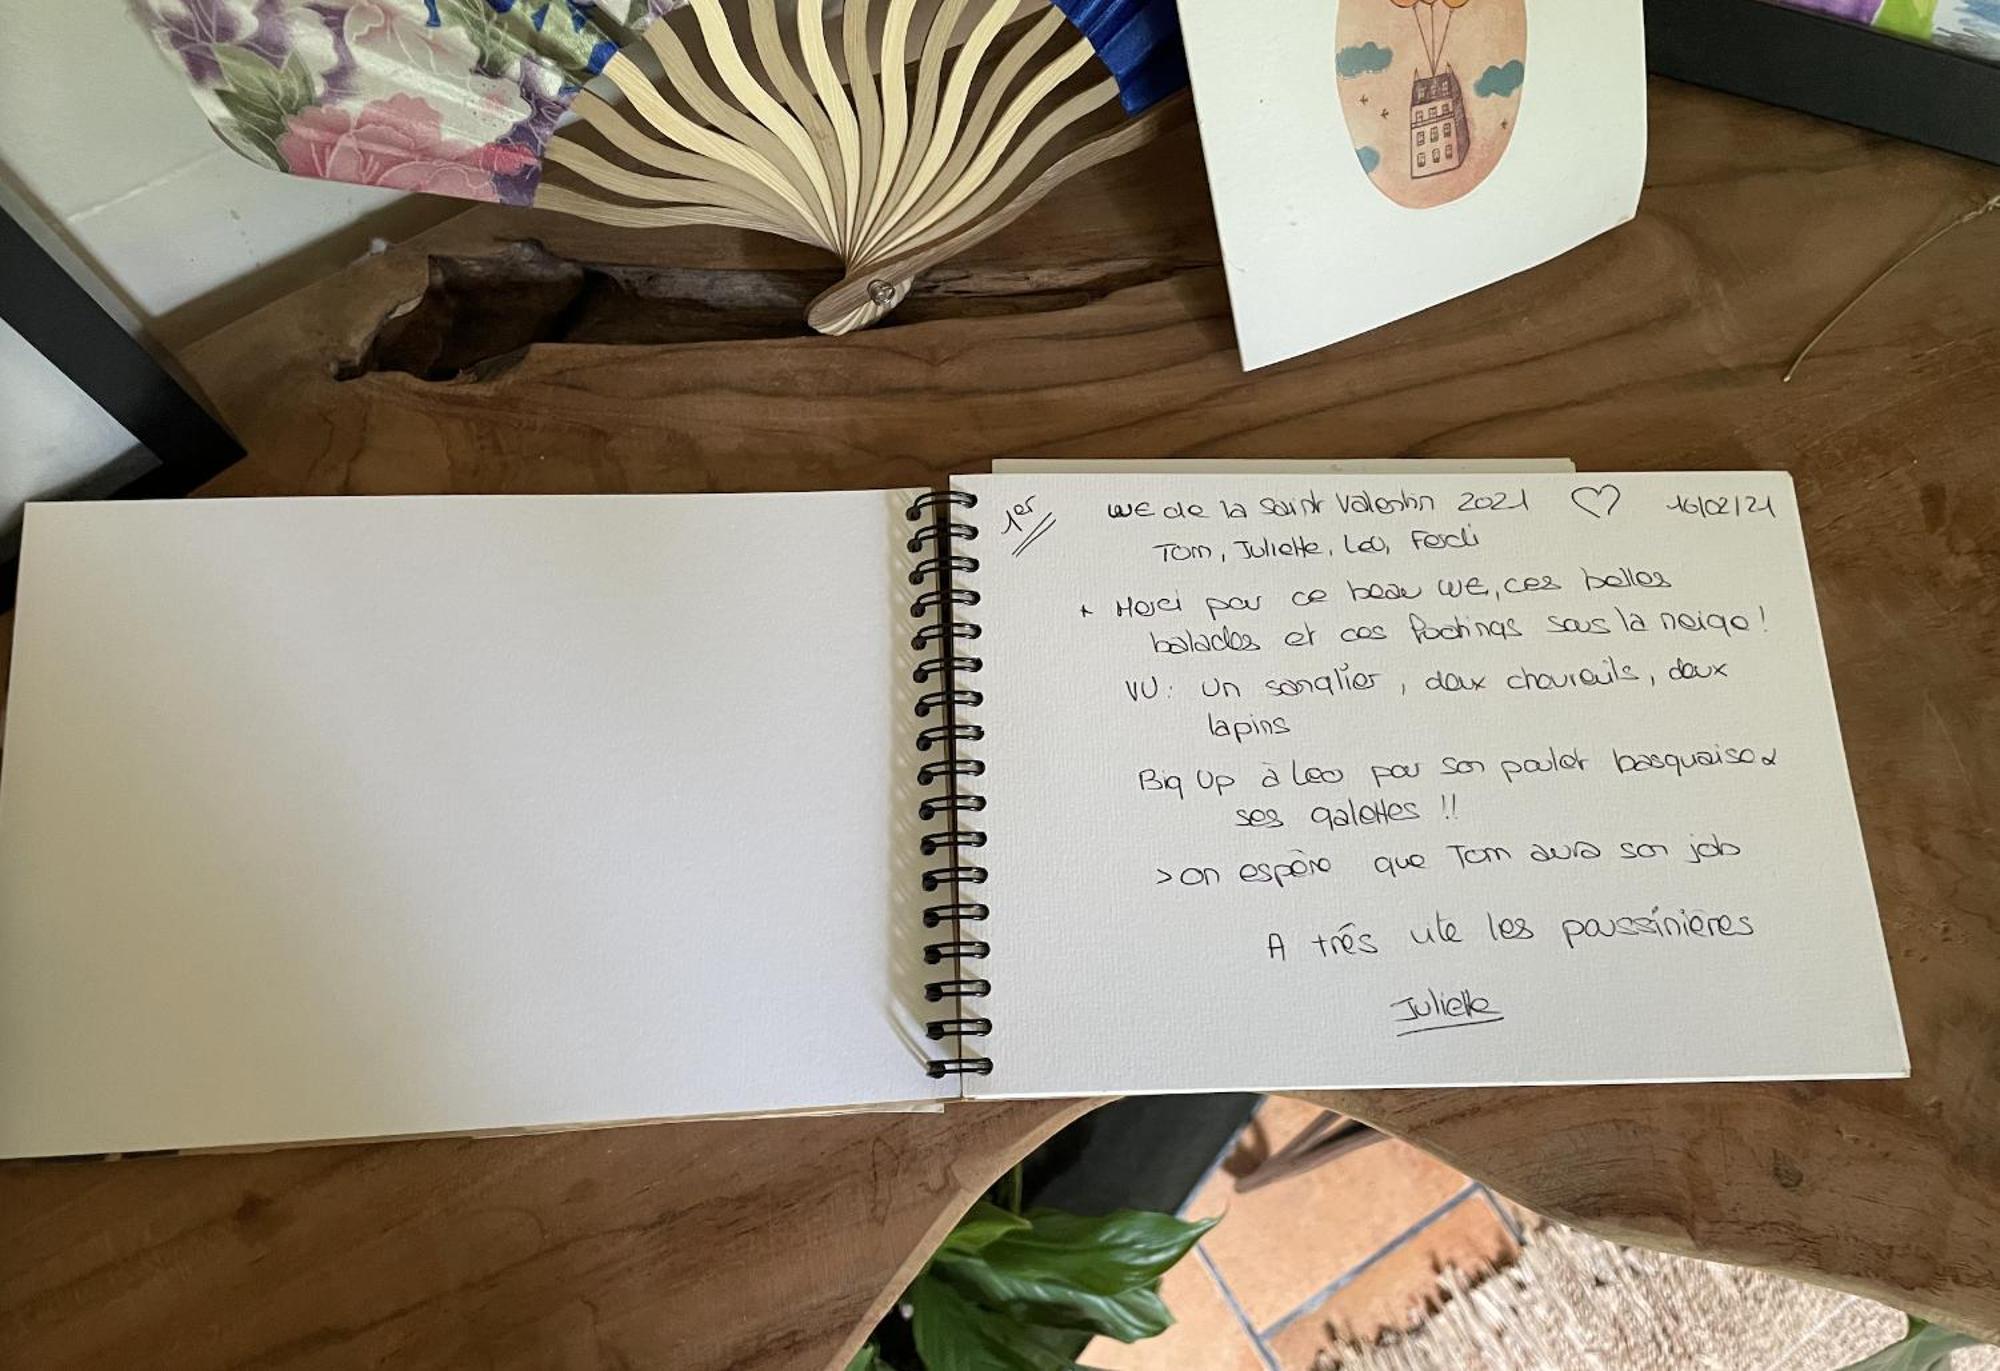 1er WE de la Saint Valentin 2021 ♡ 16/02/21
Tom, Juliette, Léo, Ferdi
+ Merci pour ce beau WE, ces belles
balades et ces footings sous la neige !
VU : un sanglier, deux chevreuils, deux
lapins
Big Up à Léo pour son poulet basquaise &
ses galettes !!
> on espère que Tom aura son job
A très vite les poussinières
Juliette